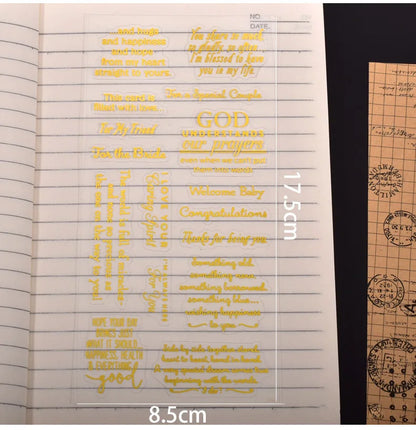 NO
DATE.
...and hugs
and happiness
and hope,
from my heart
straight to yours.
This card is
filled with love...
To My Friend
For the Bride
You share so much,
so gladly, so often.
I'm blessed to have
you in my life.
For a Special Couple
GOD
UNDERSTANDS
our prayers
even when we can't find
Welcome Baby
Congratulations
Thanks for being you
something old,
something new,
something borrowed,
something blue...
wishing happiness
to you
I LOVE YOUR
For You
The world is full of wonder
HOPE YOUR DAY
BRINGS JUST
WHAT IT SHOULD...
HAPPINESS, HEALTH
& EVERYTHING
good
Side by side together stand,
heart to heart, hand in hand.
A very special dream comes true
beginning with the words,
"I do"
17.5cm
8.5cm